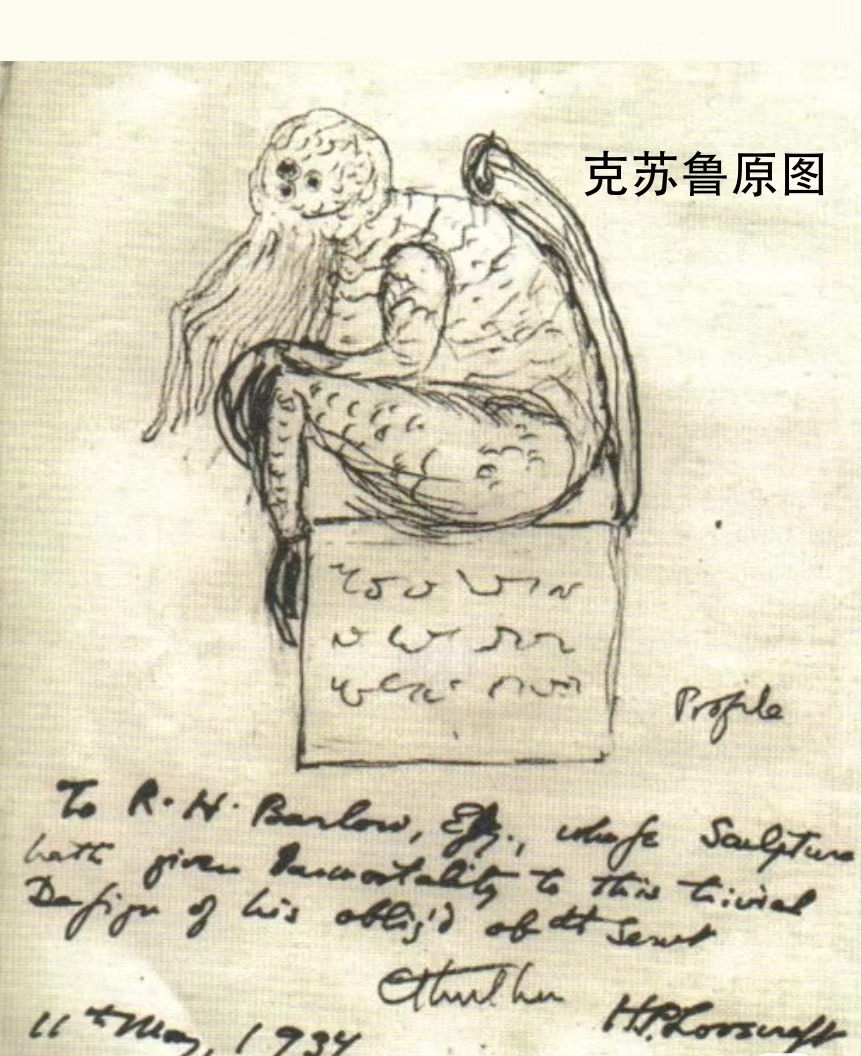 克苏鲁原图
Profile
To R. H. Barlow, Esq., whose Sculpture
hath given Immortality to this trivial
Design of his oblig'd obdt Servt
Cthulhu
H.P. Lovecraft
11th May, 1934